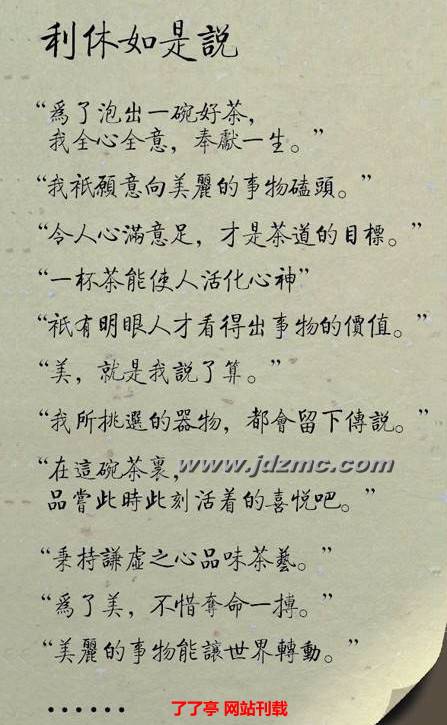 利休如是説
“爲了泡出一碗好茶，
我全心全意，奉獻一生。”
“我祇願意向美麗的事物磕頭。”
“令人心滿意足，才是茶道的目標。”
“一杯茶能使人活化心神”
“祇有明眼人才看得出事物的價值。”
“美，就是我説了算。”
“我所挑選的器物，都會留下傳説。”
“在這碗茶裏，
www.jdzmc.com
品嘗此時此刻活着的喜悦吧。”
“秉持謙虚之心品味茶藝。”
“爲了美，不惜奪命一搏。”
“美麗的事物能讓世界轉動。”
······
了了亭 网站刊载